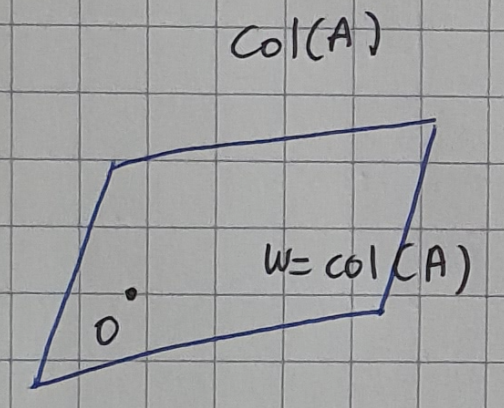 Col(A)
W= col(A)
0